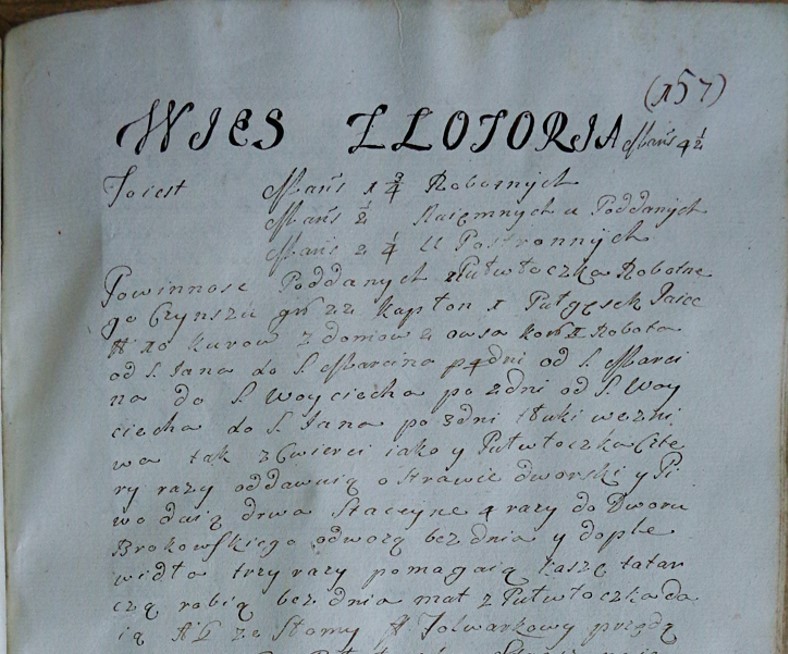 (157)
WIES ZLOTORIA Mans 4 1/2
To iest Mans 1 3/4 Robotnych
Mans 1/2 Naięmnych u Poddanych
Mans 2 1/4 U Postronnych
Powinnosc Poddanych z Pułwłoczka Robotne
go Czynszu gr 22 kapłon 1 Pułgęsek Jaiec
10 kurow z domow 2 owsa Robota
od S. Jana do S. Marcina po 4 dni od S. Marci
na do S. Woyciecha po 2 dni od S. Woy
ciecha do S. Jana po 3 dni tłuki we zni
wa tak z Cwierci iako y Pułwłoczka Czte
ry razy oddawaią o strawie dworski y Pi
wo daią drwa Stacyjne 4 razy do Dworu
Brokowskiego odwozą bez dnia y do ple
widła trzy razy pomagaią kaszę tatar
czą robią bez dnia mat z Pułwłoczka da
ią ze Słomy Folwarkowy przędą